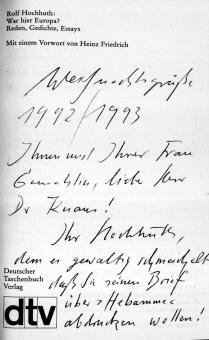 Rolf Hochhuth:
War hier Europa?
Reden, Gedichte, Essays
Mit einem Vorwort von Heinz Friedrich
Weihnachtsgrüße
1992/1993
Ihnen und Ihrer Frau
Gemahlin, liebe Herr
Dr Knaus!
Ihr Hochhuth,
dem es gewaltig schmeichelt
daß Sie seinen Brief
über Hebammen
abdrucken wollen!
Deutscher
Taschenbuch
Verlag
dtv